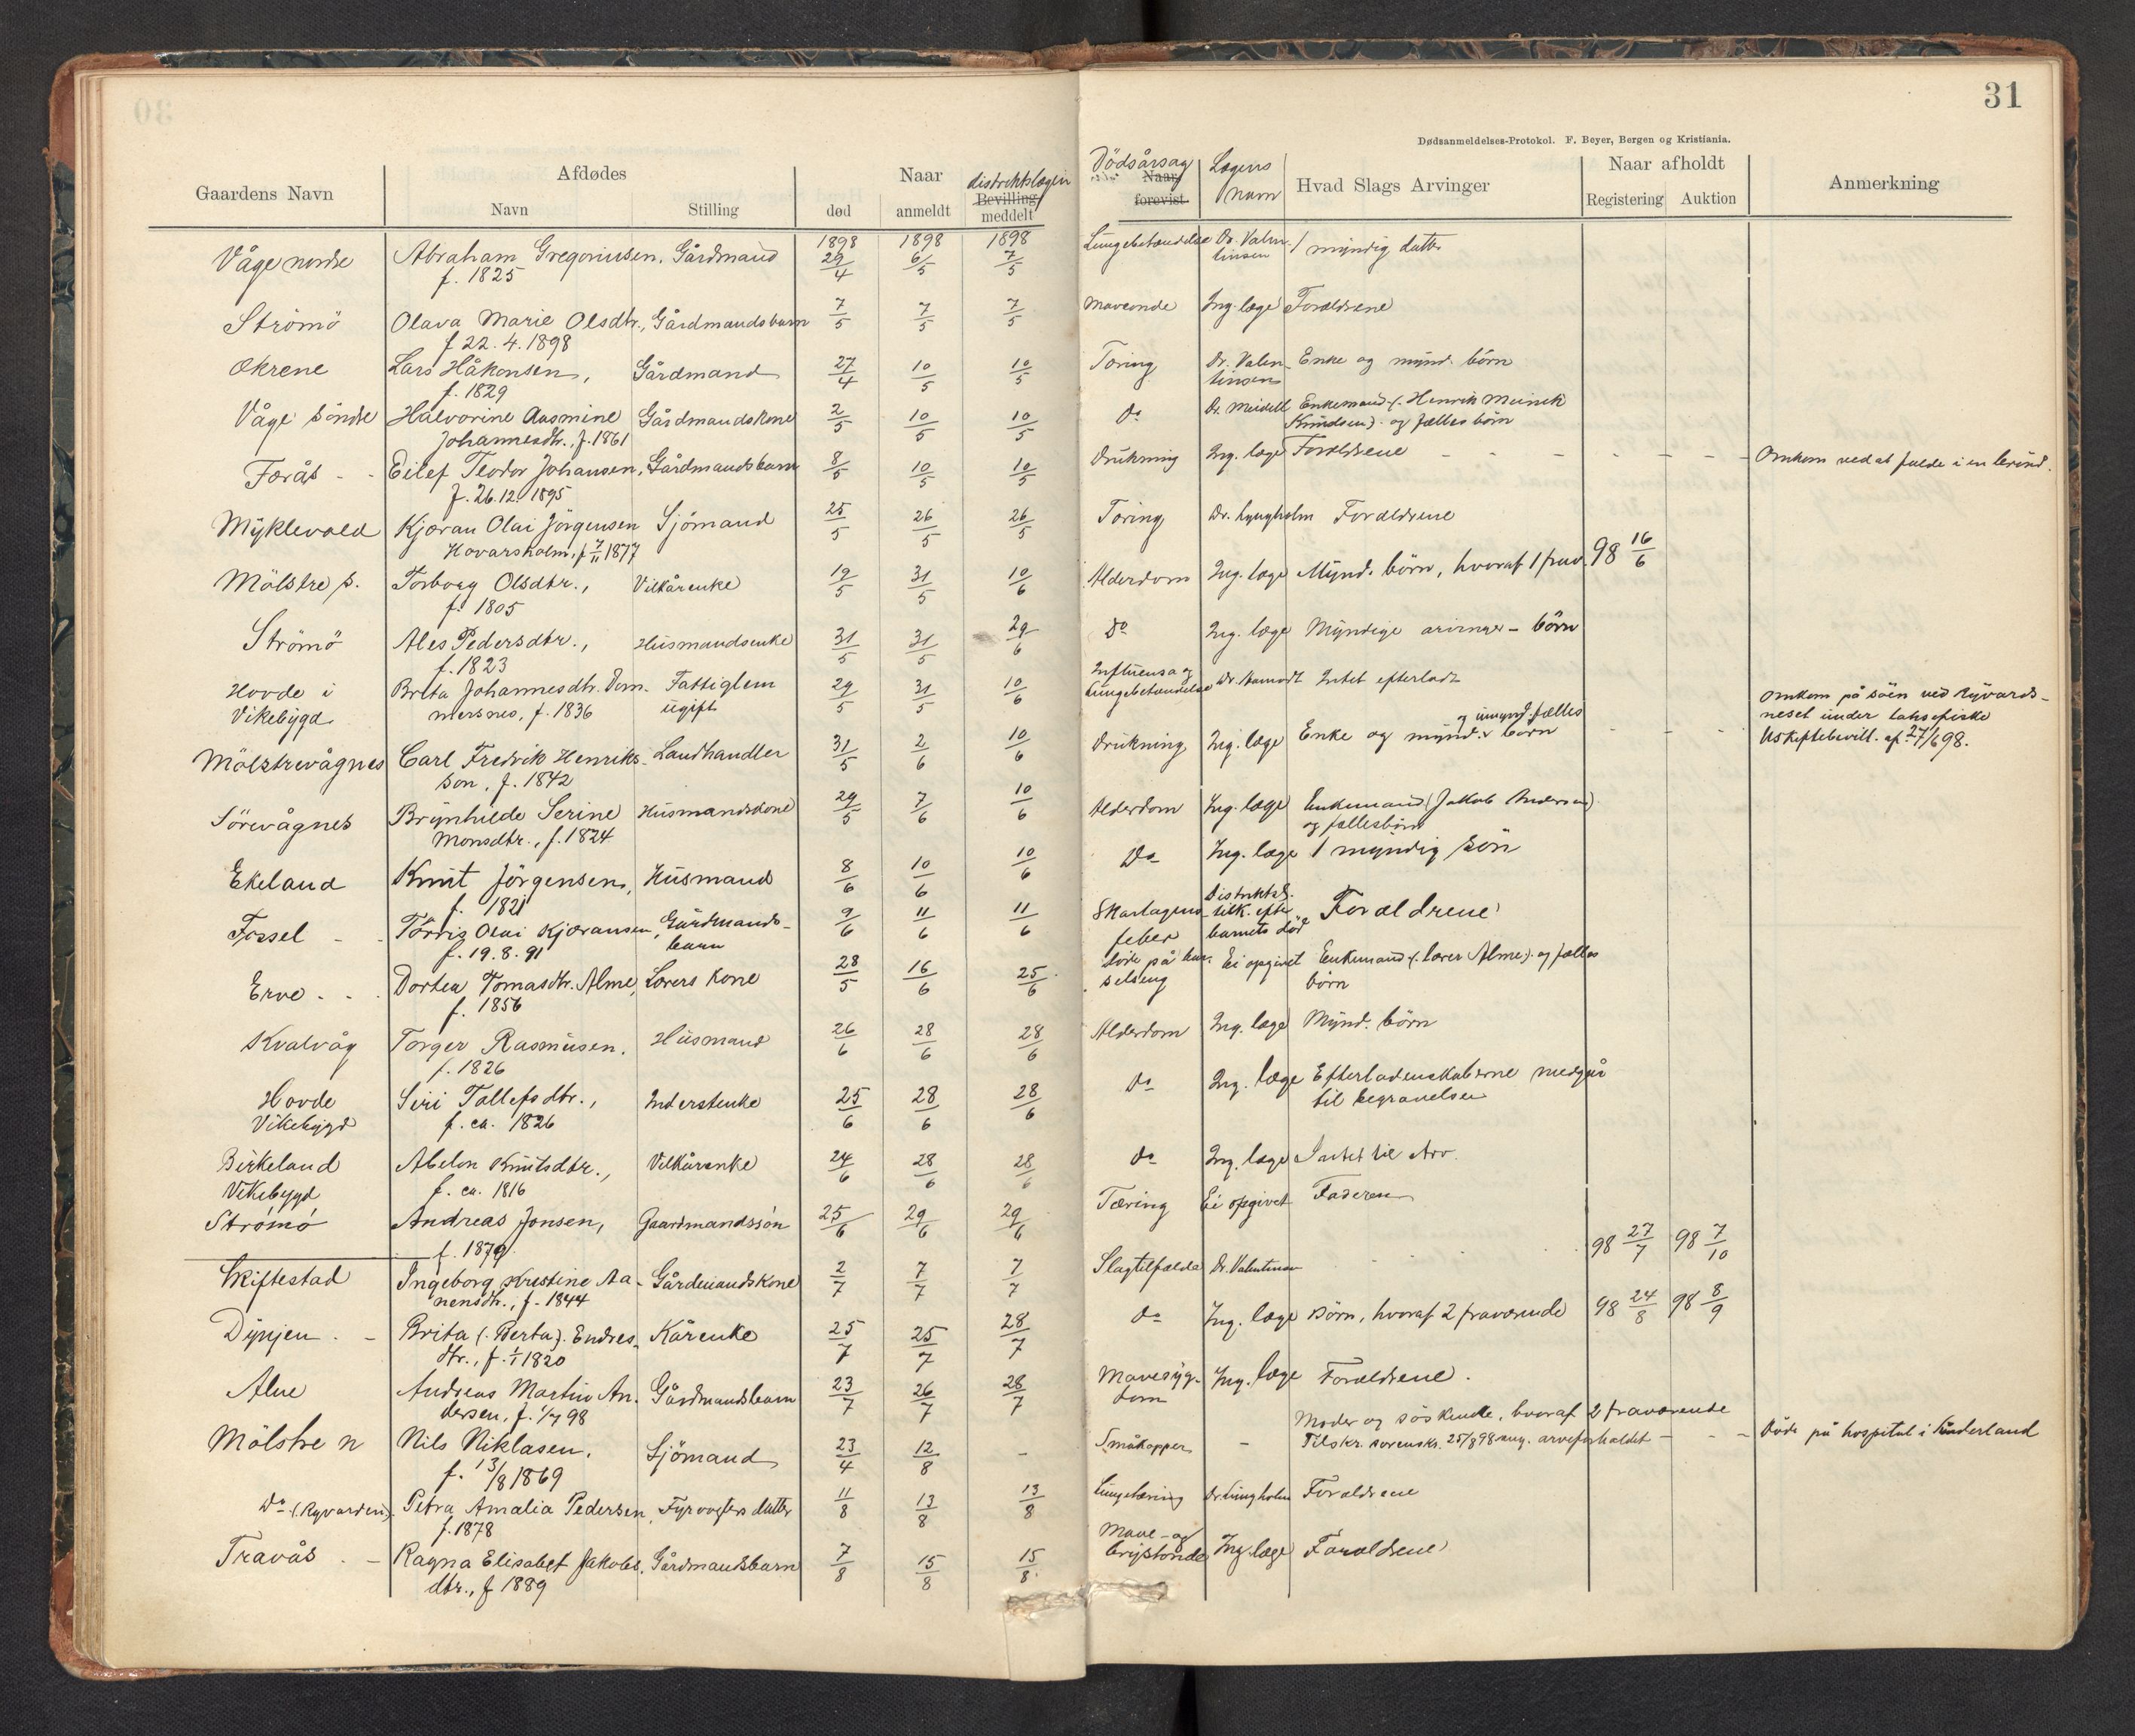 31
Dødsanmeldelses-Protokol. F. Beyer, Bergen og Kristiania.
Gaardens Navn
Afdødes
Navn
Stilling
Naar
død
anmeldt
distriktslægen
Bevilling
meddelt
Dödsårsag
Naar
forevist
Lægens
navn
Hvad Slags Arvinger
Naar afholdt
Registering
Auktion
Anmerkning
1898 1898 1898
Våge nordre Abraham Gregoriussen. Gårdmand 29/4 6/5 7/5 Lungebetændelse Dr. Valen- 1 myndig datter
f. 1825 tinsen
Strömö Olava Marie Olsdtr., Gårdmandsbarn 7/5 7/5 7/5 Maveonde Ing. læge Forældrene
f 22.4.1898
Økrene Lars Håkonsen, Gårdmand 27/4 10/5 10/5 Tæring Dr. Valen- Enke og mynd. börn
f. 1829 tinsen
Våge söndre Halvorine Aasmine Gårdmandskone 2/5 10/5 10/5 Do Dr. Meidell Enkemand (. Henrik Meinik
Johannesdtr., f. 1861 Knudsen). og fælles börn
Færås - - Eilef Teodor Johansen, Gårdmandsbarn 8/5 10/5 10/5 Drukning Ing. læge Forældrene - - - - - - Omkom ved at falde i en brönd.
f. 26.12.1895
Myklevold Kjæran Olai Jörgensen Sjömand 25/5 26/5 26/5 Tæring Dr. Lyngholm Forældrene
Hovarsholm, f 7/11 1877
Mölstre s. Torborg Olsdtr., Vilkårenke 19/5 31/5 10/6 Alderdom Ing. læge Mynd. börn, hvoraf 1 frav. 98 16/6
f. 1805
Strömö Ales Pedersdtr., Husmandsenke 31/5 31/5 29/6 Do Ing. læge Myndige arvinger - börn
f. 1823
Hovde i Brita Johannesdtr. Vom- Fattiglem 29/5 31/5 10/6 Influensa og Intet efterladt
Vikebygd. mersnes, f. 1836 ugift Lungebetændelse
Mölstrevågnes Carl Fredrik Henriks- Landhandler 31/5 2/6 10/6 Drukning Ing. læge Enke og mynd. og umynd. fælles börn - - - Omkom på söen ved Ryvards-
son, f. 1842 neset under laksefiske
Uskiftebevill. af 27/6 98.
Sörevågnes Brynhilde Serine Husmandskone 29/5 7/6 10/6 Alderdom Ing. læge Enkemand (Jakob Andersen)
Monsdtr., f. 1824 og fællesbörn
Ekeland Knut Jörgensen, Husmand 8/6 10/6 10/6 Do Ing. læge 1 myndig sön
f. 1821
Fossel - - Tördis Olai Kjæransen, Gårdmands- 9/6 11/6 11/6 Skarlagens- Distriktsl. Forældrene
f. 19.8.91 barn feber tilk. efter
barnets död
Erve - - Dortea Tomasdtr. Alme, Lærers kone 28/5 16/6 25/6 Döde på bar- Ei opgivet Enkemand (. lærer Alme). og fælles
f. 1856 selseng börn
Kvalvåg Torger Rasmusen. Husmand 26/6 28/6 28/6 Alderdom Ing. læge Mynd. börn
f. 1826
Hovde Siri Tollefsdtr., Inderstenke 25/6 28/6 28/6 Do Ing. læge Efterladenskaberne medgår
Vikebygd f. ca. 1826 til begravelsen
Birkeland Abelon Knutsdtr., Vilkårenke 24/6 28/6 28/6 Do Ing. læge Intet til Arv.
Vikebygd f. ca. 1816
Strömö Andreas Jonsen, Gaardmandssön 25/6 29/6 29/6 Tæring Ei opgivet Faderen
f. 1879
Skiftestad Ingeborg Kristine Aa- Gårdmandskone 2/7 7/7 7/7 Slagtilfælde Dr. Valentinsen 98 27/7 98 7/10
nensdtr., f. 1844
Dynjen. - Brita (. Berta). Endres- Kårenke 25/7 25/7 28/7 Do Ing. læge Börn, hvoraf 2 fraværende 98 24/8 98 8/9
dtr., f. 1/1 1820
Alne Andreas Martin An- Gårdmandsbarn 23/7 26/7 28/7 Mavesyg- Ing. læge Forældrene.
dersen, f. 1/7 98 dom
Mölstre n Nils Niklasen, Sjömand 23/4 12/8 - Småkopper - Moder og söskende, hvoraf 2 fraværende
f. 13/8 1869 Tilskr. sorensk. 25/8 98 ang. arveforholdet - - - Döde på hospital i Sunderland
Do (. Ryvarden). Petra Amalia Pedersen, Fyrvogters datter 11/8 13/8 13/8 Lungetæring Dr. Lungholm Forældrene
f. 1878
Travås. - Ragna Elisabet Jakobs- Gårdmandsbarn 7/8 15/8 15/8 Mave- og Ing. læge Forældrene
dtr., f 1889 brystonde